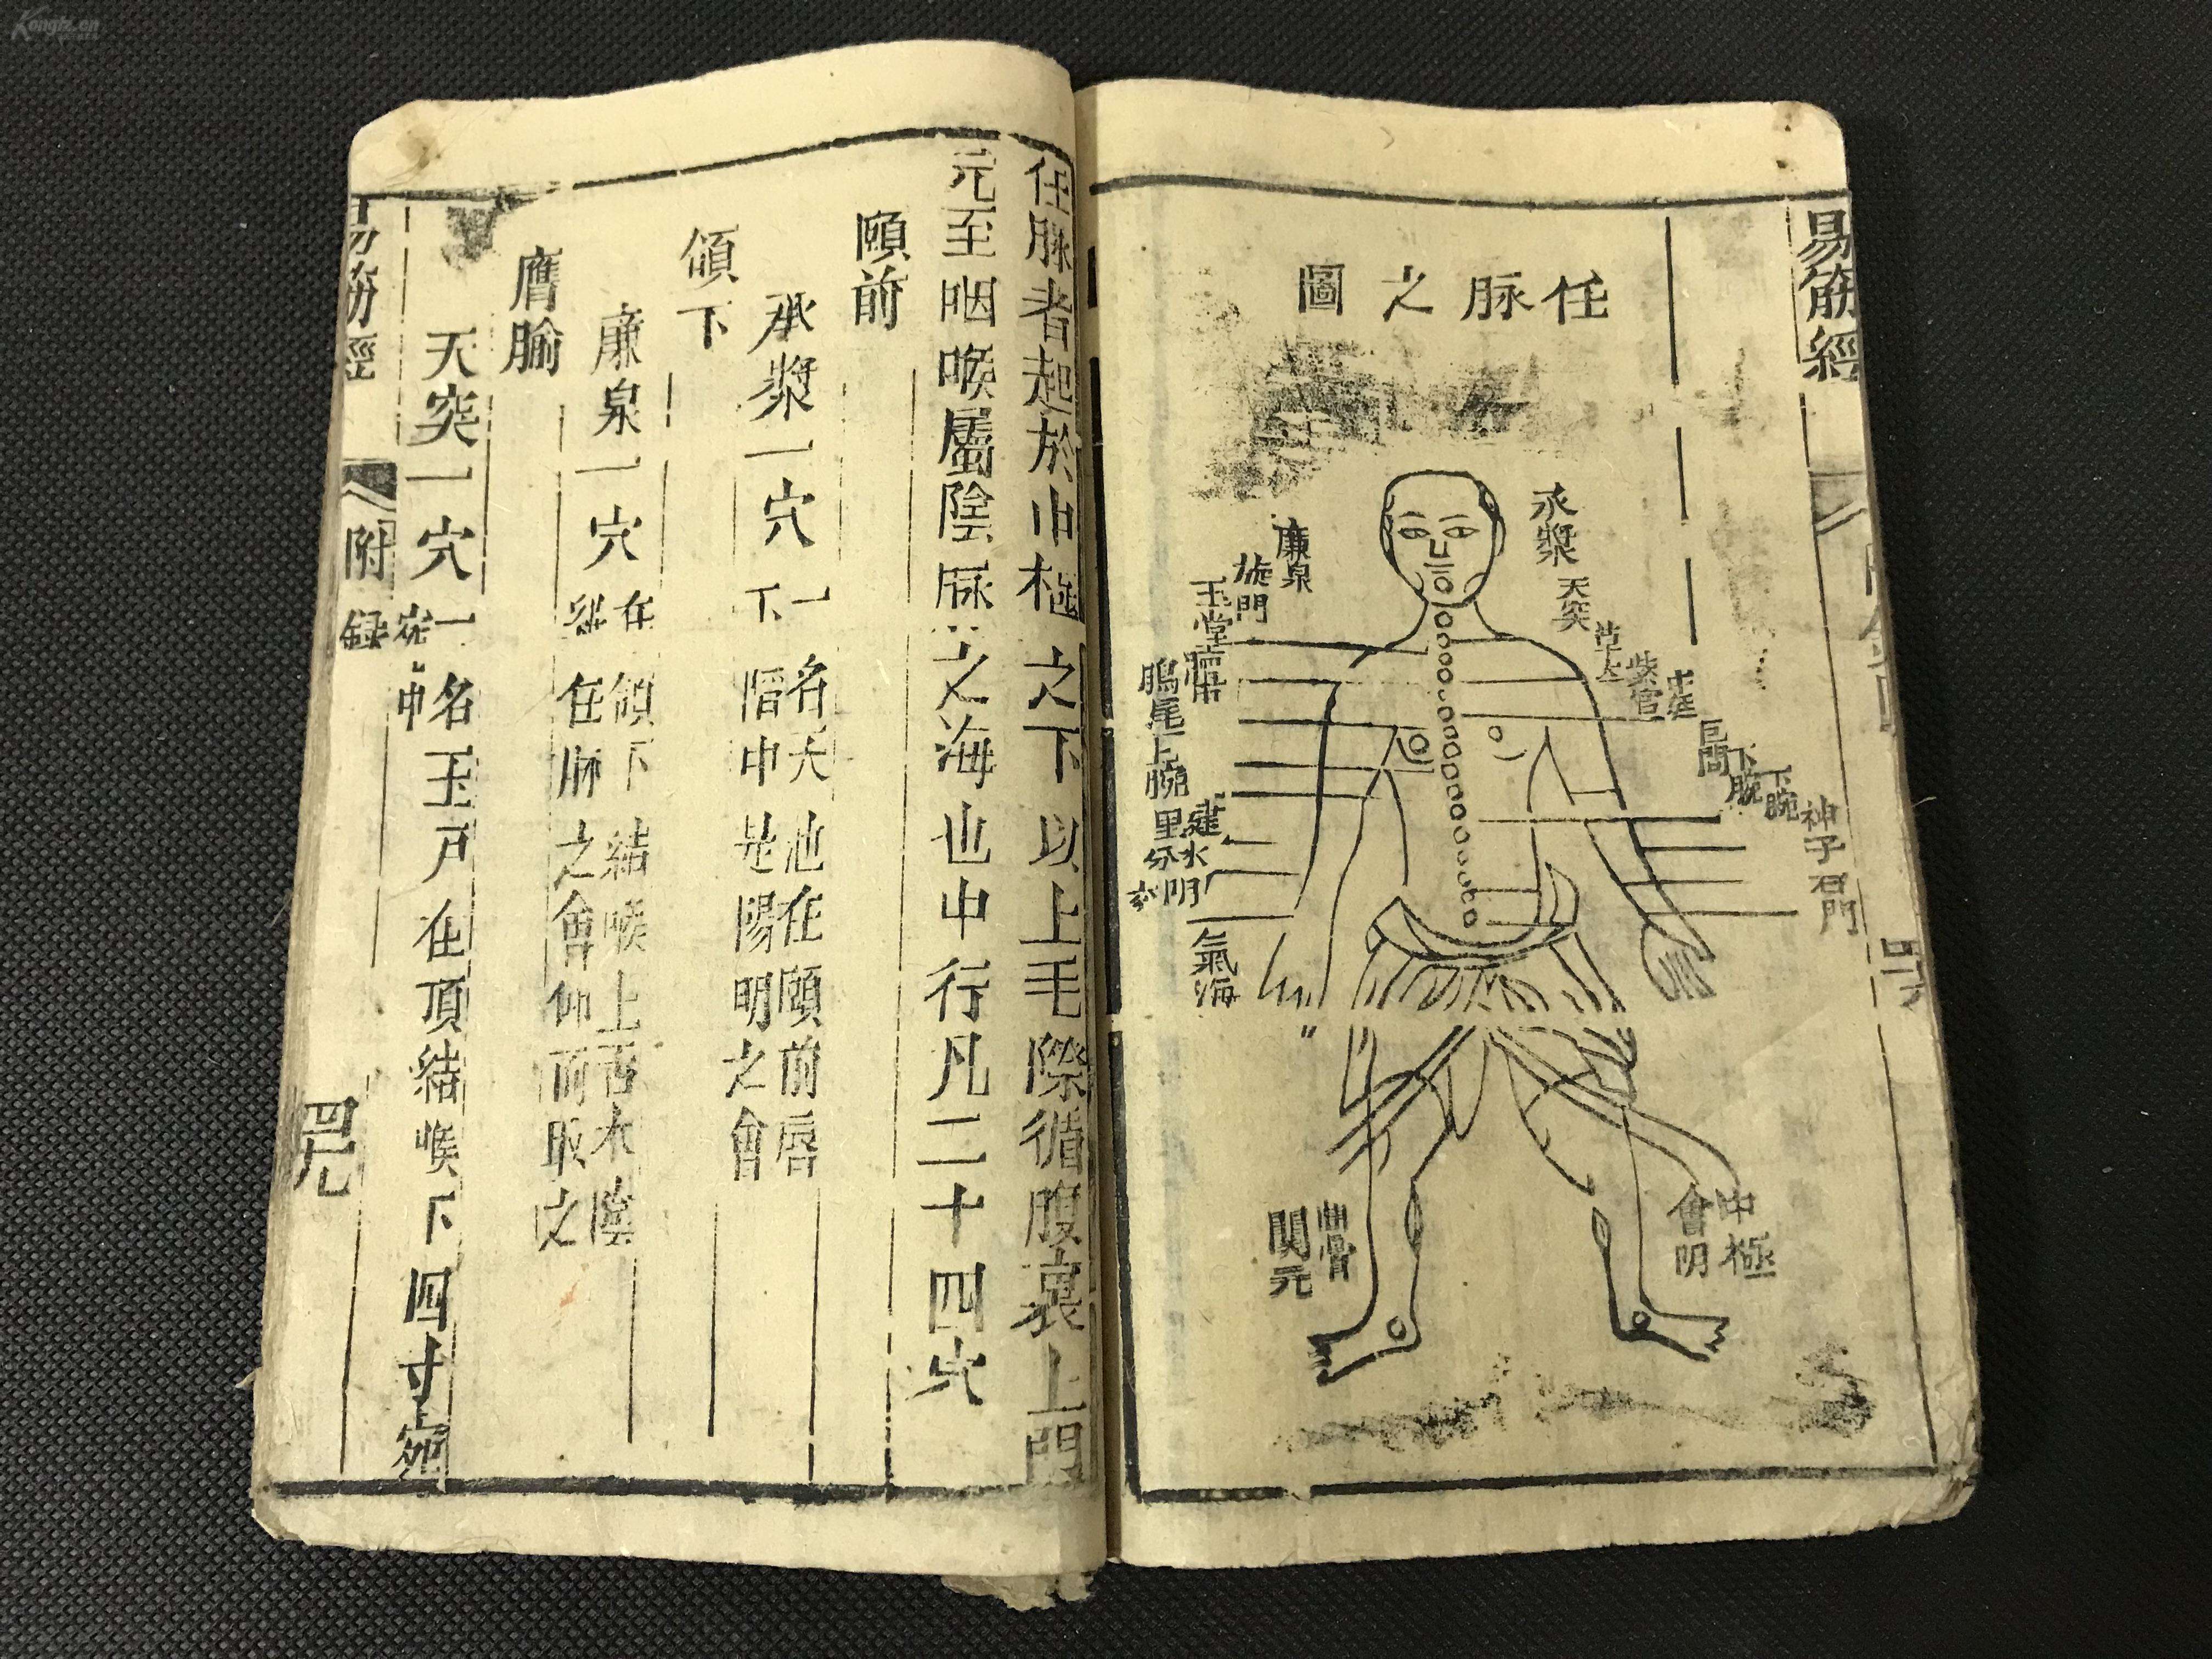 Kongfz.cn
易筋經
任脉之圖
承漿
天突
紫宮
神子
石門
廉泉
玉堂
鳩尾上腕
氣海
中極
會明
曲骨
關元
任脉者起於中極之下以上毛際循腹裏上關
元至咽喉屬陰脉之海也中行凡二十四穴
頤前
承漿一穴
一名天池在頤前唇
下陷中是陽明之會
頷下
廉泉一穴
在頷下結喉上舌本陰
維任脉之會仰而取之
膺腧
天突一穴一名玉戶在頂結喉下四寸宛
宛中
易筋經
附録
四九